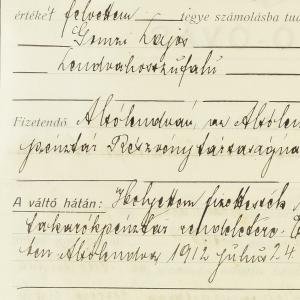 értékét felvettem jegye számolásba tud
Gönczi Lajos
Lendvahosszufalu
Fizetendő Alsólendván, az Alsólen
pénztár Részvénytársaságna
A váltó hátán: Helyettem fizettessék
takarékpénztár rendeletére.
Alsólendva 1912 julius 24